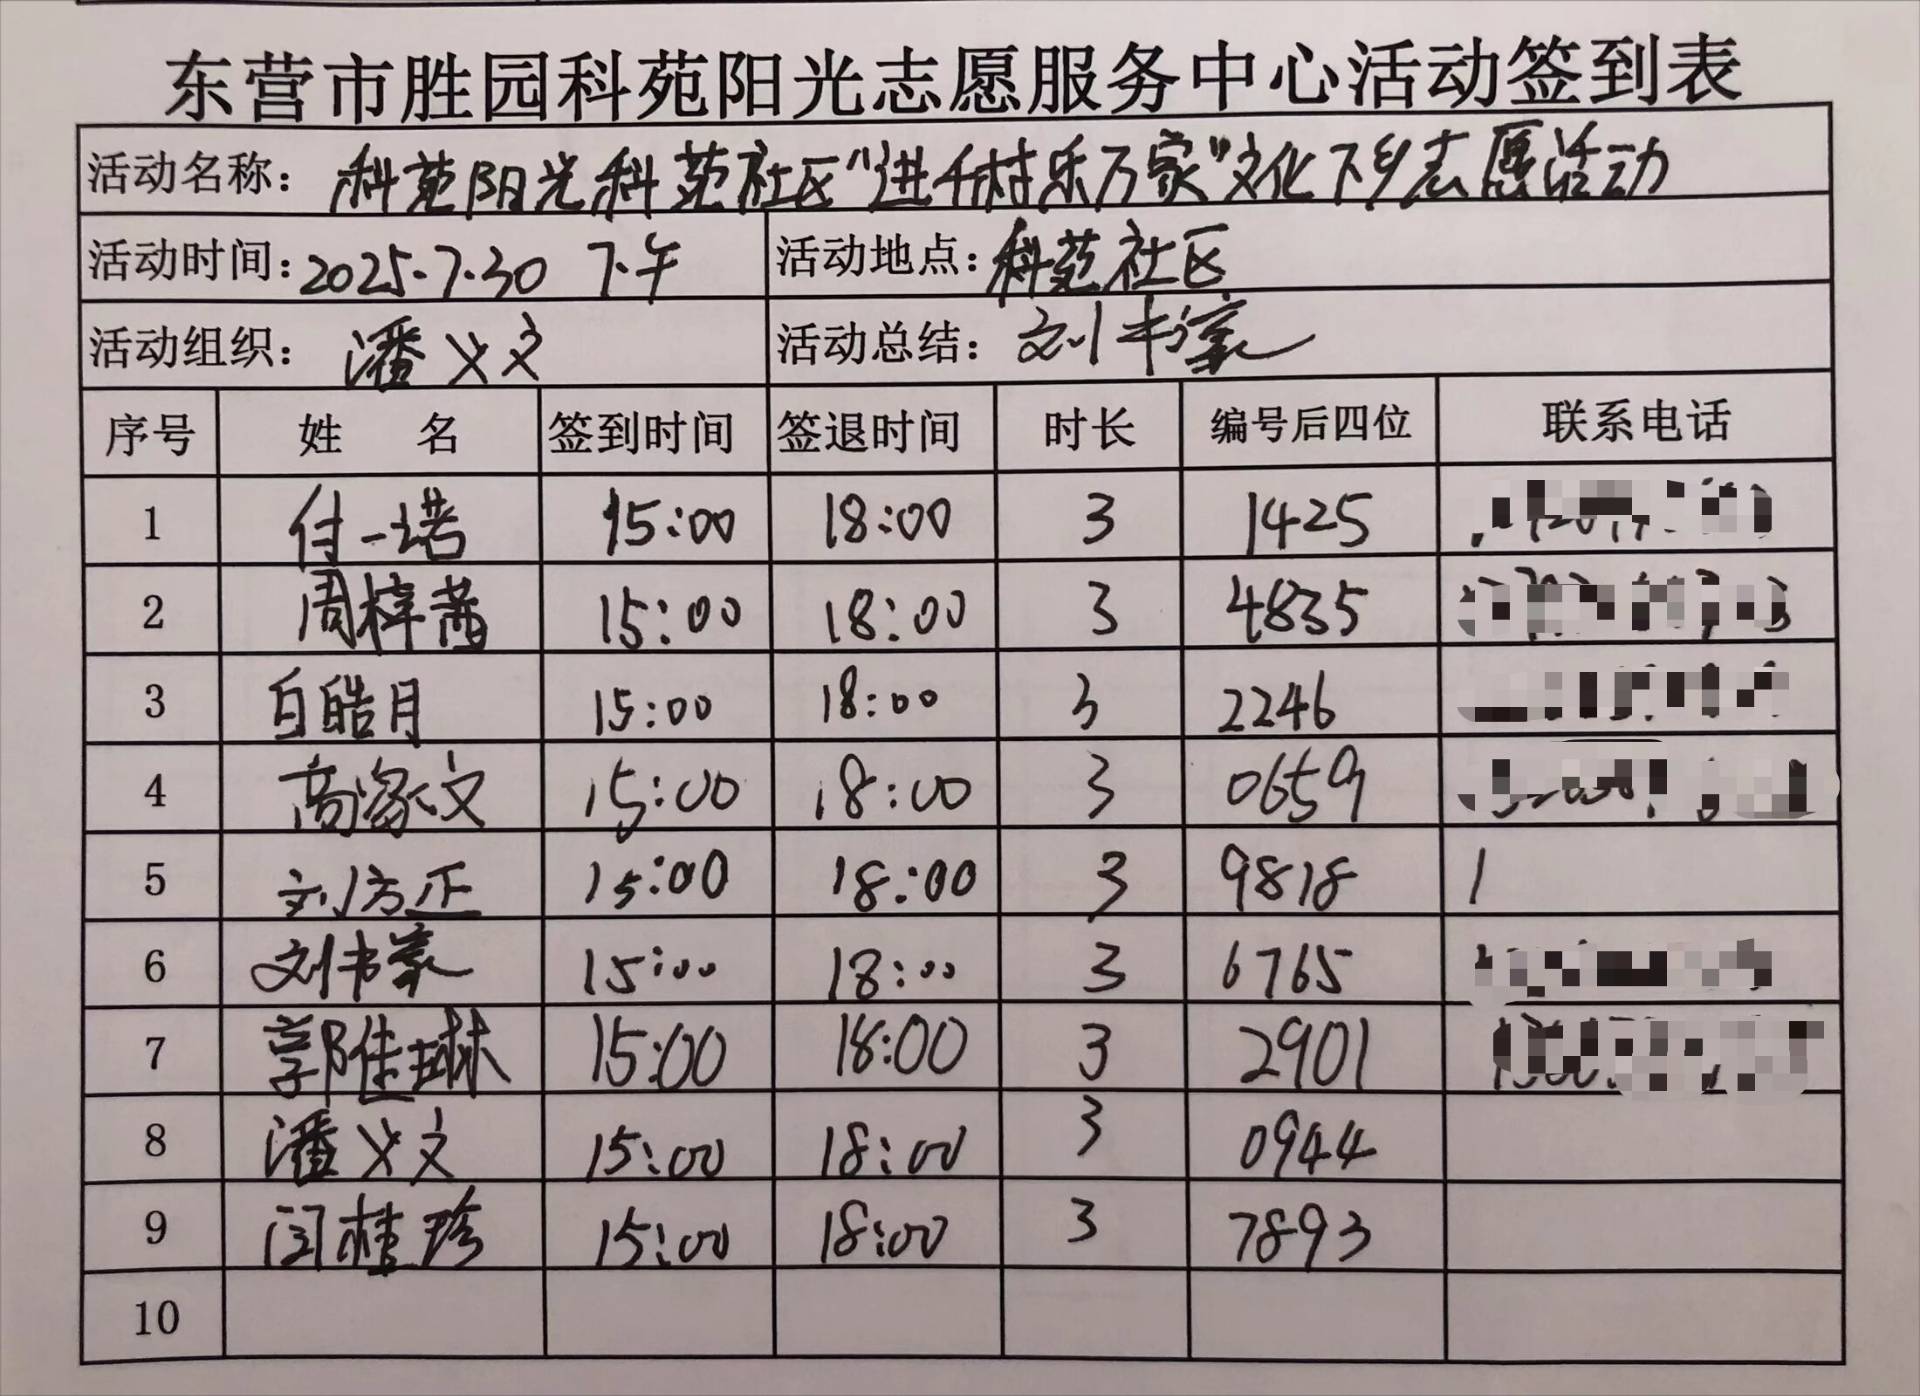 东营市胜园科苑阳光志愿服务中心活动签到表
活动名称: 科苑阳光科苑社区"进千村乐万家"文化下乡志愿活动
活动时间: 2025.7.30 下午 活动地点: 科苑社区
活动组织: 潘义文 活动总结: 刘书豪
序号 姓 名 签到时间 签退时间 时长 编号后四位 联系电话
1 付一诺 15:00 18:00 3 1425
2 周梓茜 15:00 18:00 3 4835
3 白皓月 15:00 18:00 3 2246
4 高家文 15:00 18:00 3 0659
5 刘方正 15:00 18:00 3 9818 1
6 刘书豪 15:00 18:00 3 6765
7 郭佳球 15:00 18:00 3 2901
8 潘义文 15:00 18:00 3 0944
9 闫桂珍 15:00 18:00 3 7893
10